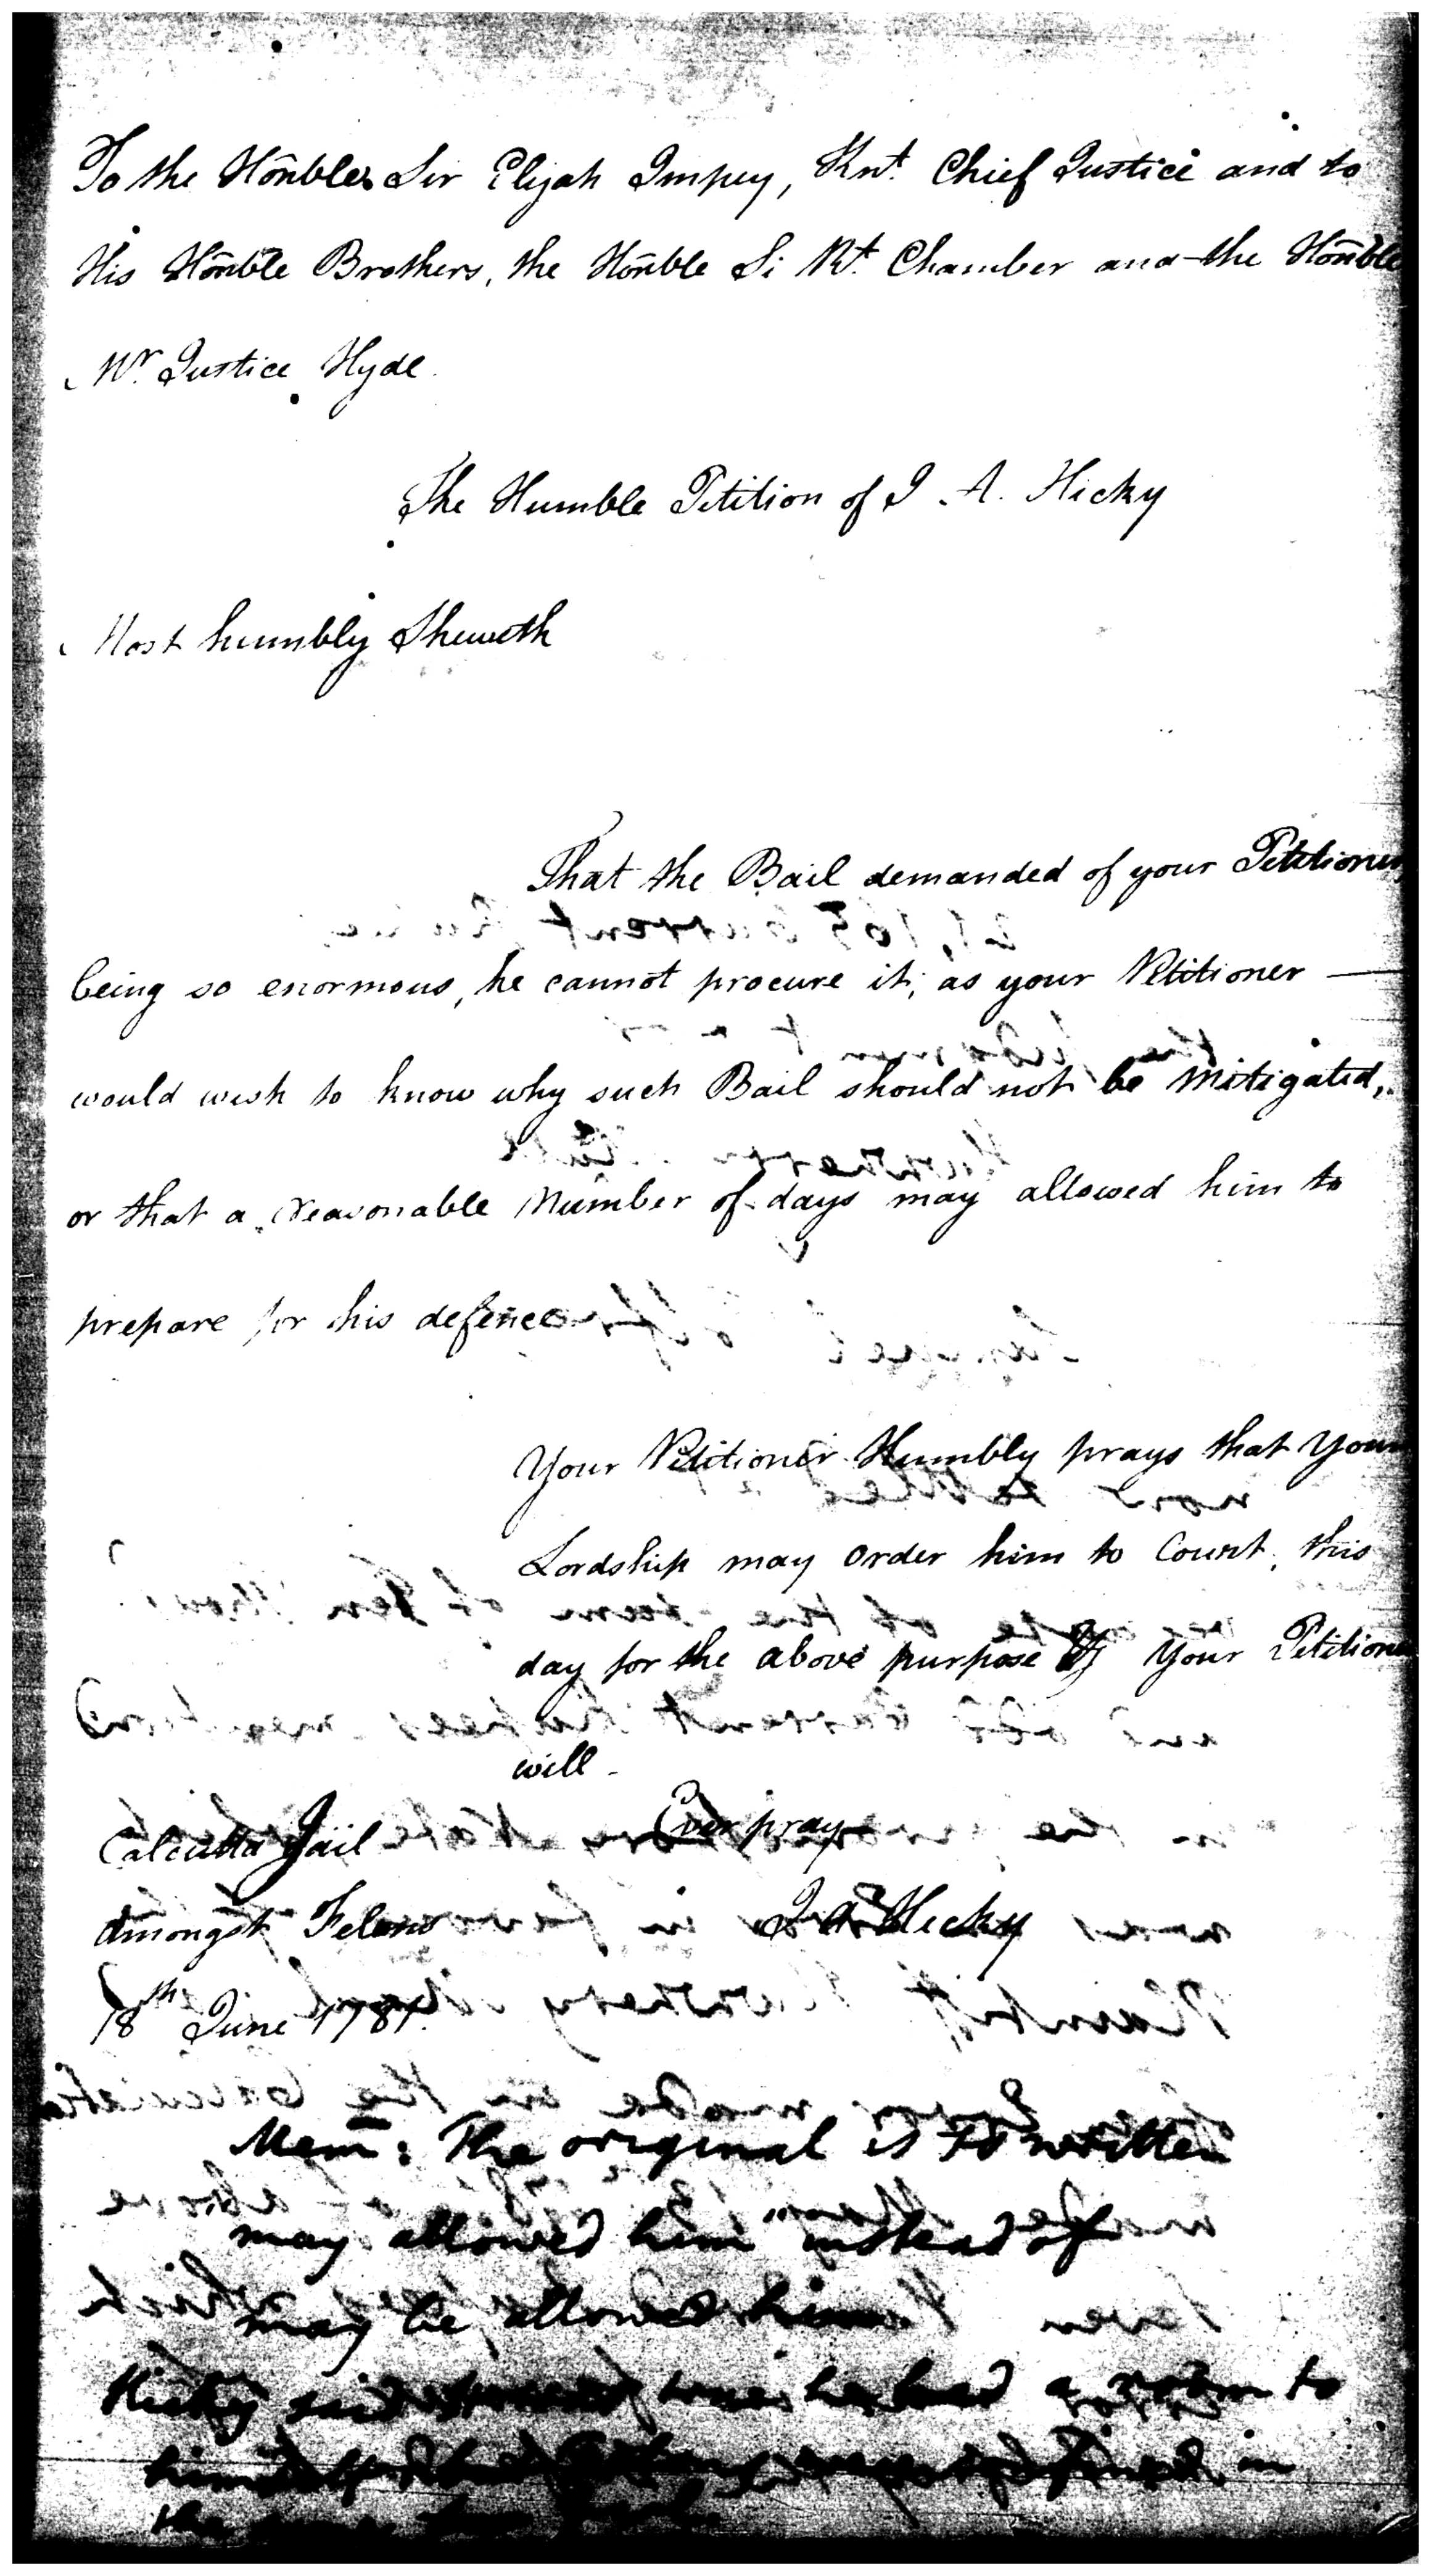 To the Hon̄ble Sir Elijah Impey, Knt. Chief Justice and to
His Hon̄ble Brothers, the Hon̄ble Si Rt. Chamber and the Hon̄ble
Mr. Justice Hyde.
The Humble Petition of J. A. Hicky
Most humbly Sheweth
That the Bail demanded of your Petitioner
being so enormous, he cannot procure it; as your Petitioner —
would wish to know why such Bail should not be mitigated,
or that a reasonable Number of days may allowed him to
prepare for his defence
Your Petitioner Humbly prays that Your
Lordship may order him to Court, this
day for the above purpose & Your Petitioner
will
Ever pray
Calcutta Jail
amongst Felons
J A Hicky
18th June 1781.
Mem̄: The original is so written
may allowed him" instead of
may be allowed him
Hicky said he had a room to
himself in
the